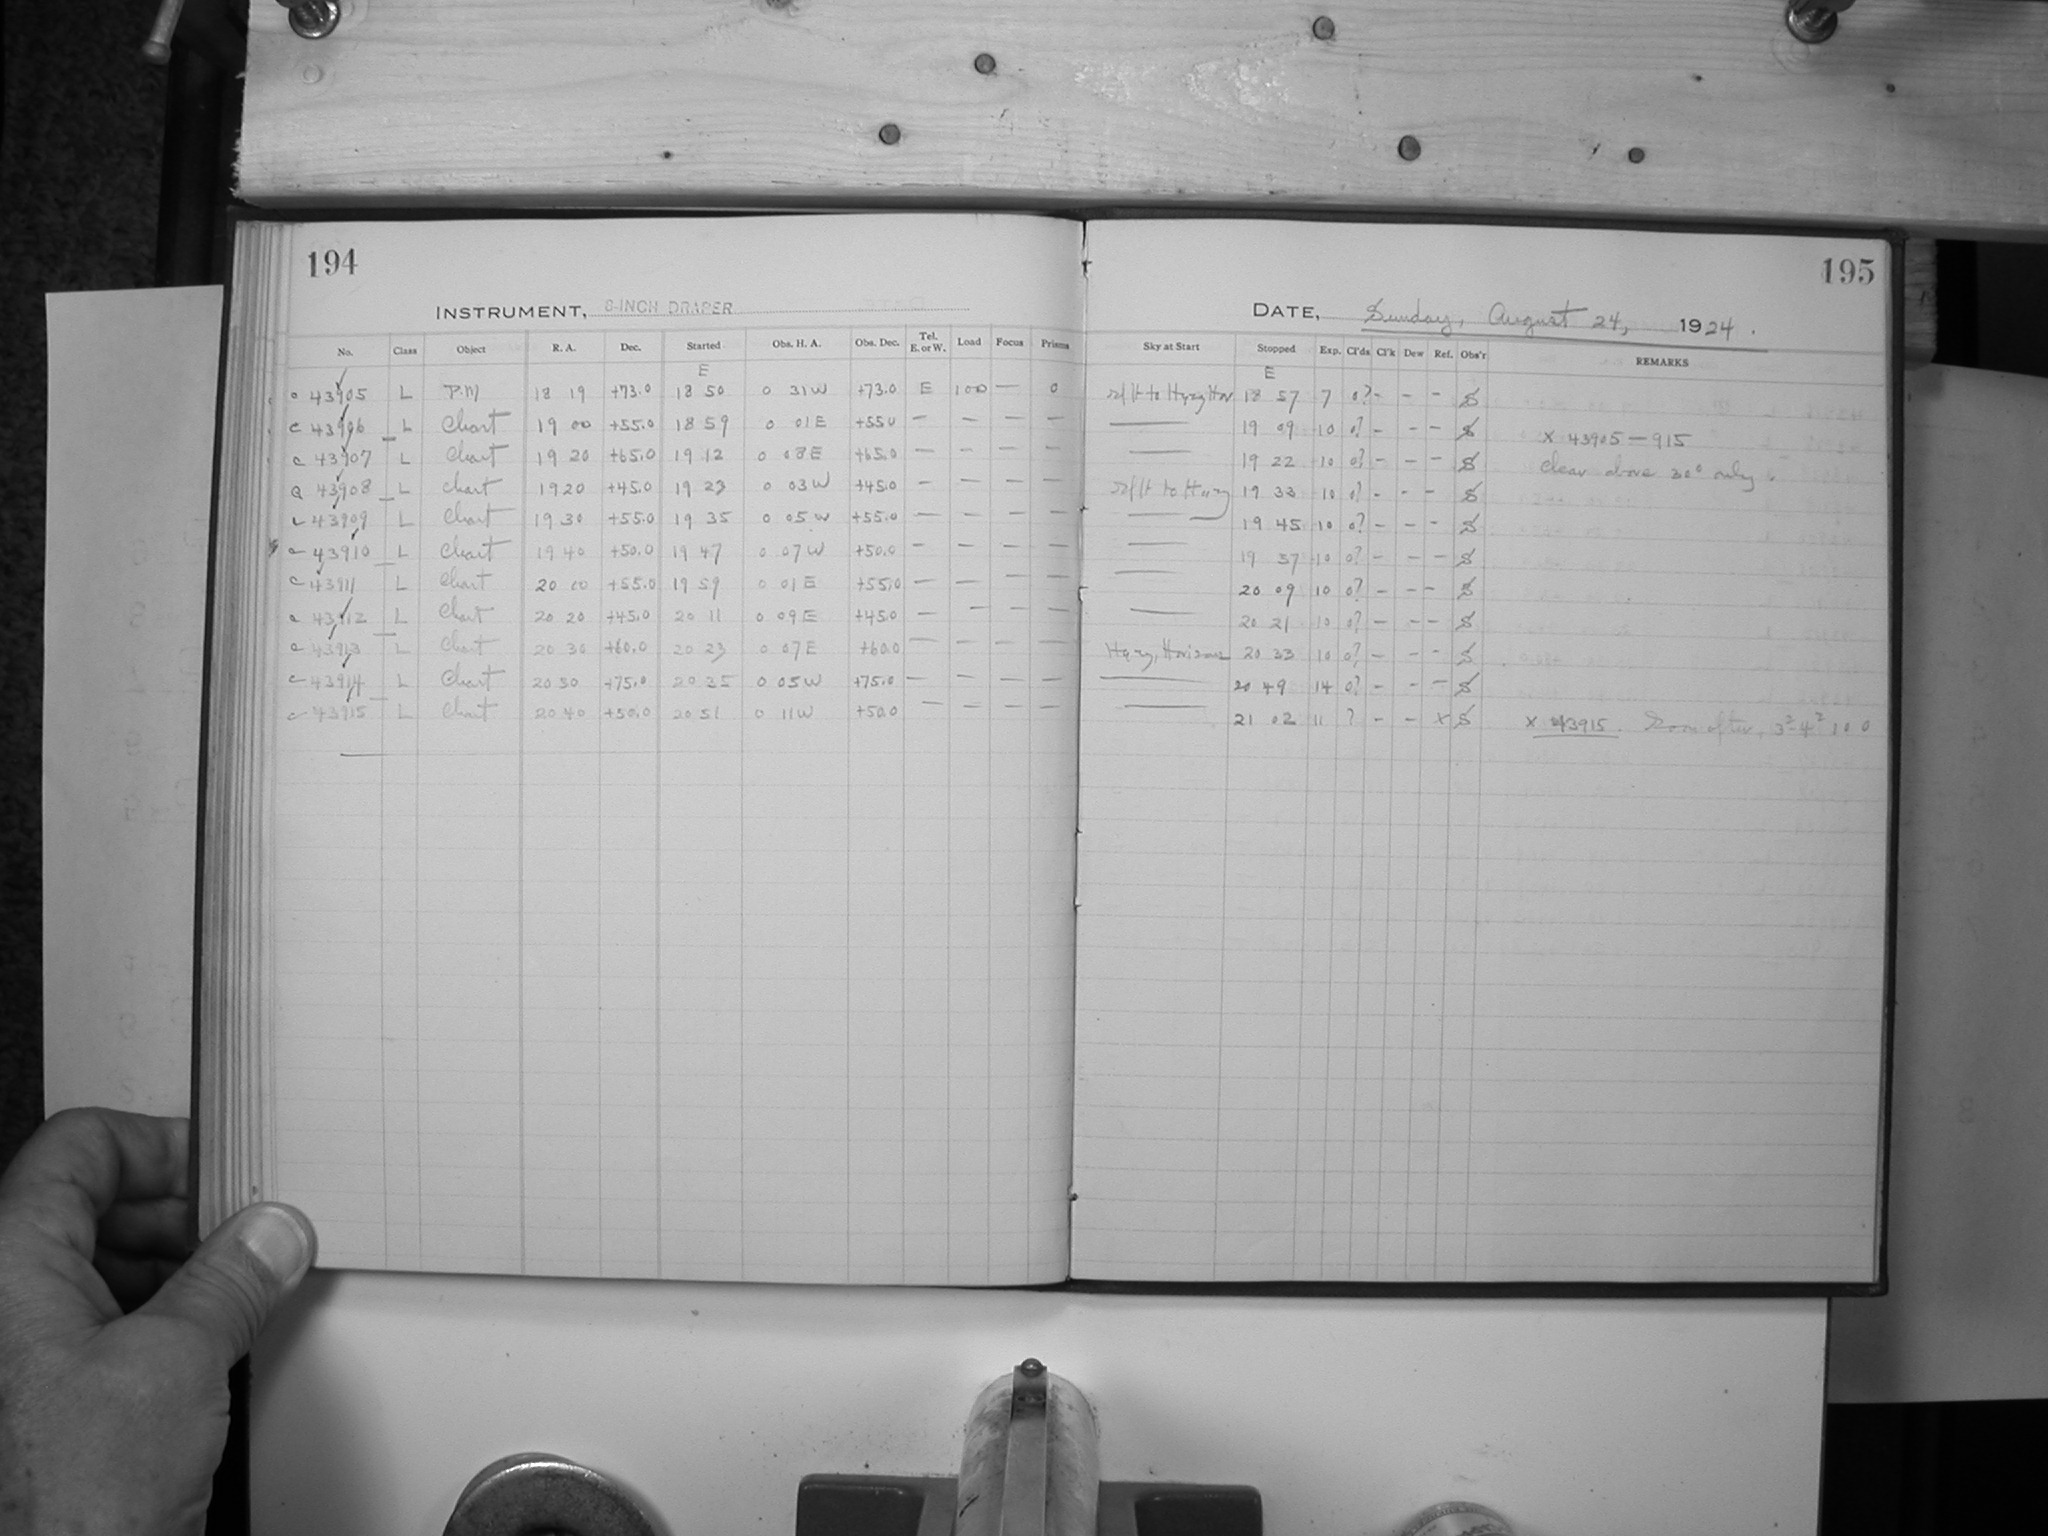 194
INSTRUMENT, 8-INCH DRAPER
No. Class Object R. A. Dec. Started Obs. H. A. Obs. Dec. Tel. E. or W. Load Focus Prisms
E
43905 L P.M 18 19 +73.0 18 50 0 31W +73.0 E 100 — 0
c 43906 L Chart 19 00 +55.0 18 59 0 01E +55.0 — — — —
c 43907 L Chart 19 20 +65.0 19 12 0 08E +65.0 — — — —
43908 L Chart 19 20 +45.0 19 23 0 03W +45.0 — — — —
43909 L Chart 19 30 +55.0 19 35 0 05W +55.0 — — — —
43910 L Chart 19 40 +50.0 19 47 0 07W +50.0 — — — —
c 43911 L Chart 20 00 +55.0 19 59 0 01E +55.0 — — — —
43912 L Chart 20 20 +45.0 20 11 0 09E +45.0 — — — —
43913 L Chart 20 30 +60.0 20 23 0 07E +60.0 — — — —
43914 L Chart 20 30 +75.0 20 35 0 05W +75.0 — — — —
43915 L Chart 20 40 +50.0 20 51 0 11W +50.0 — — — —
195
DATE, Sunday, August 24, 1924.
Sky at Start Stopped Exp. Cl'ds Cl'k Dew Ref. Obs'r REMARKS
E
to Hazy Hor 18 57 7 0? - - - S
— 19 09 10 0? - - - S x 43905—915
— 19 22 10 0? - - - S clear above 30° only.
to Hazy 19 33 10 0? - - - S
— 19 45 10 0? - - - S
— 19 57 10 0? - - - S
— 20 09 10 0? - - - S
— 20 21 10 0? - - - S
Hazy, Horizon 20 33 10 0? - - - S
— 20 49 14 0? - - - S
— 21 02 11 ? - - x S x 43915. Soon after,